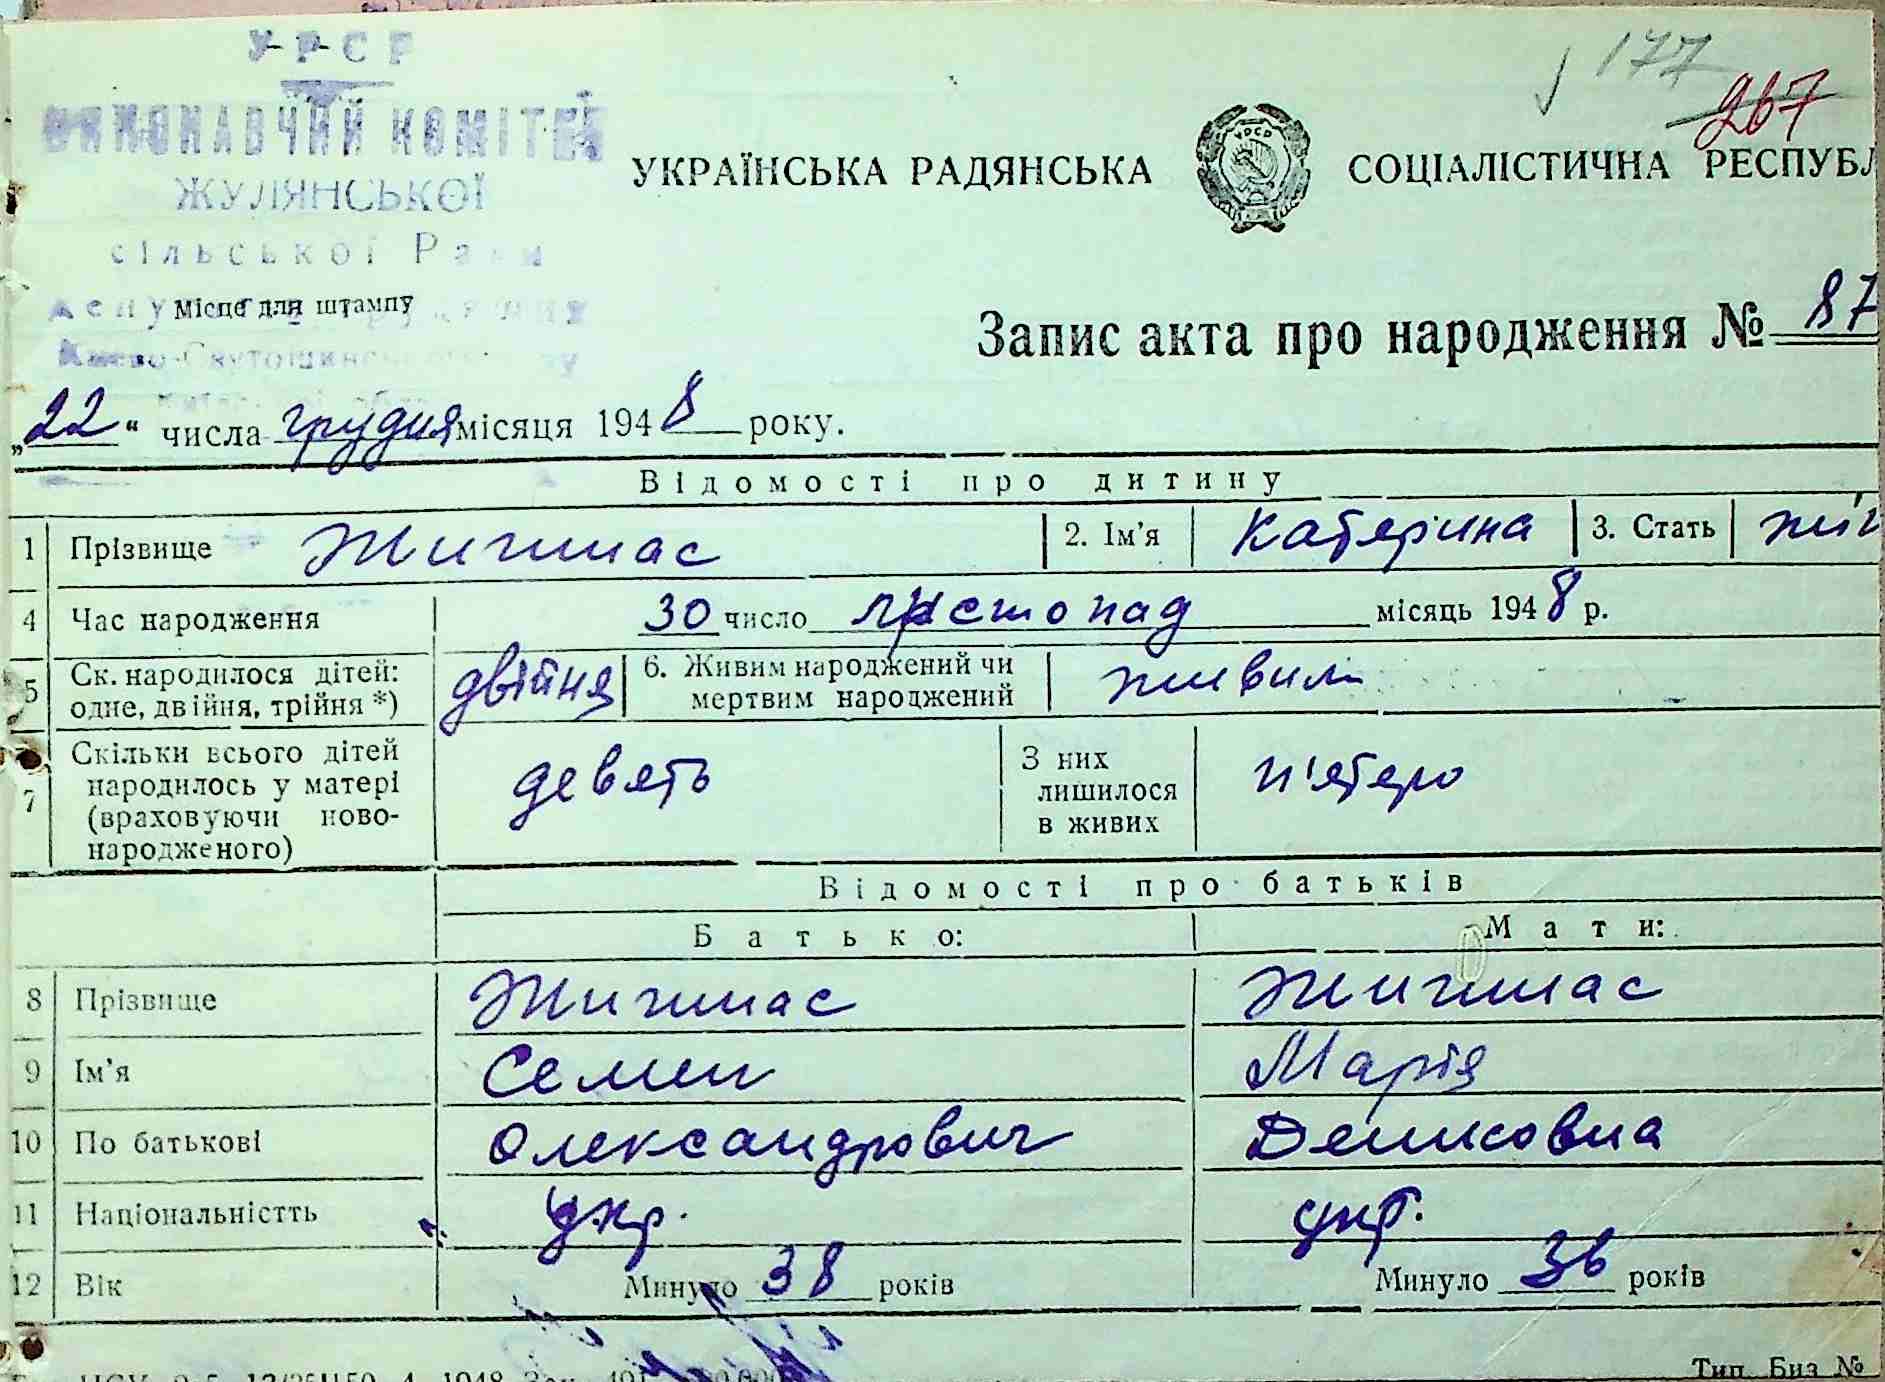 УРСР
ВИКОНАВЧИЙ КОМІТЕТ
ЖУЛЯНСЬКОЇ
сільської Ради
Місце для штампу
Києво-Святошинського
177
267
УКРАЇНСЬКА РАДЯНСЬКА СОЦІАЛІСТИЧНА РЕСПУБЛ
Запис акта про народження № 87
„22“ числа грудня місяця 1948 року.
Відомості про дитину
1 Прізвище Жигмас 2. Ім'я Катерина 3. Стать жін
4 Час народження 30 число листопад місяць 1948 р.
5 Ск. народилося дітей: двійня 6. Живим народжений чи живим
одне, двійня, трійня *) мертвим народжений
7 Скільки всього дітей девять З них п'ятеро
народилось у матері лишилося
(враховуючи ново- в живих
народженого)
Відомості про батьків
Батько: Мати:
8 Прізвище Жигмас Жигмас
9 Ім'я Семен Марія
10 По батькові Олександрович Денисовна
11 Національністть укр. укр.
12 Вік Минуло 38 років Минуло 36 років
Тип. Биз №